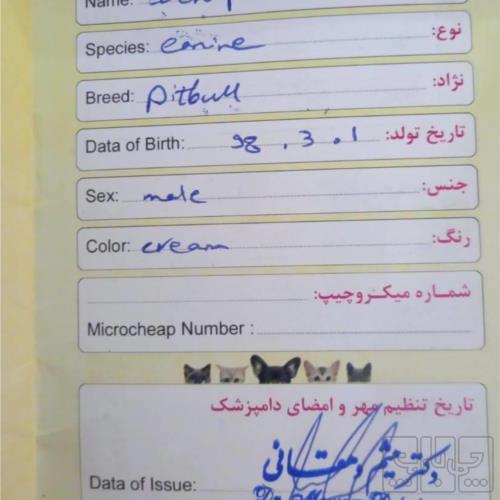 Name:
Species: canine نوع:
Breed: pitbull نژاد:
Data of Birth: 98 . 3 . 1 تاریخ تولد:
Sex: male جنس:
Color: cream رنگ:
شماره میکروچیپ:
Microcheap Number :
تاریخ تنظیم مهر و امضای دامپزشک
دکتر میثم
Data of Issue: